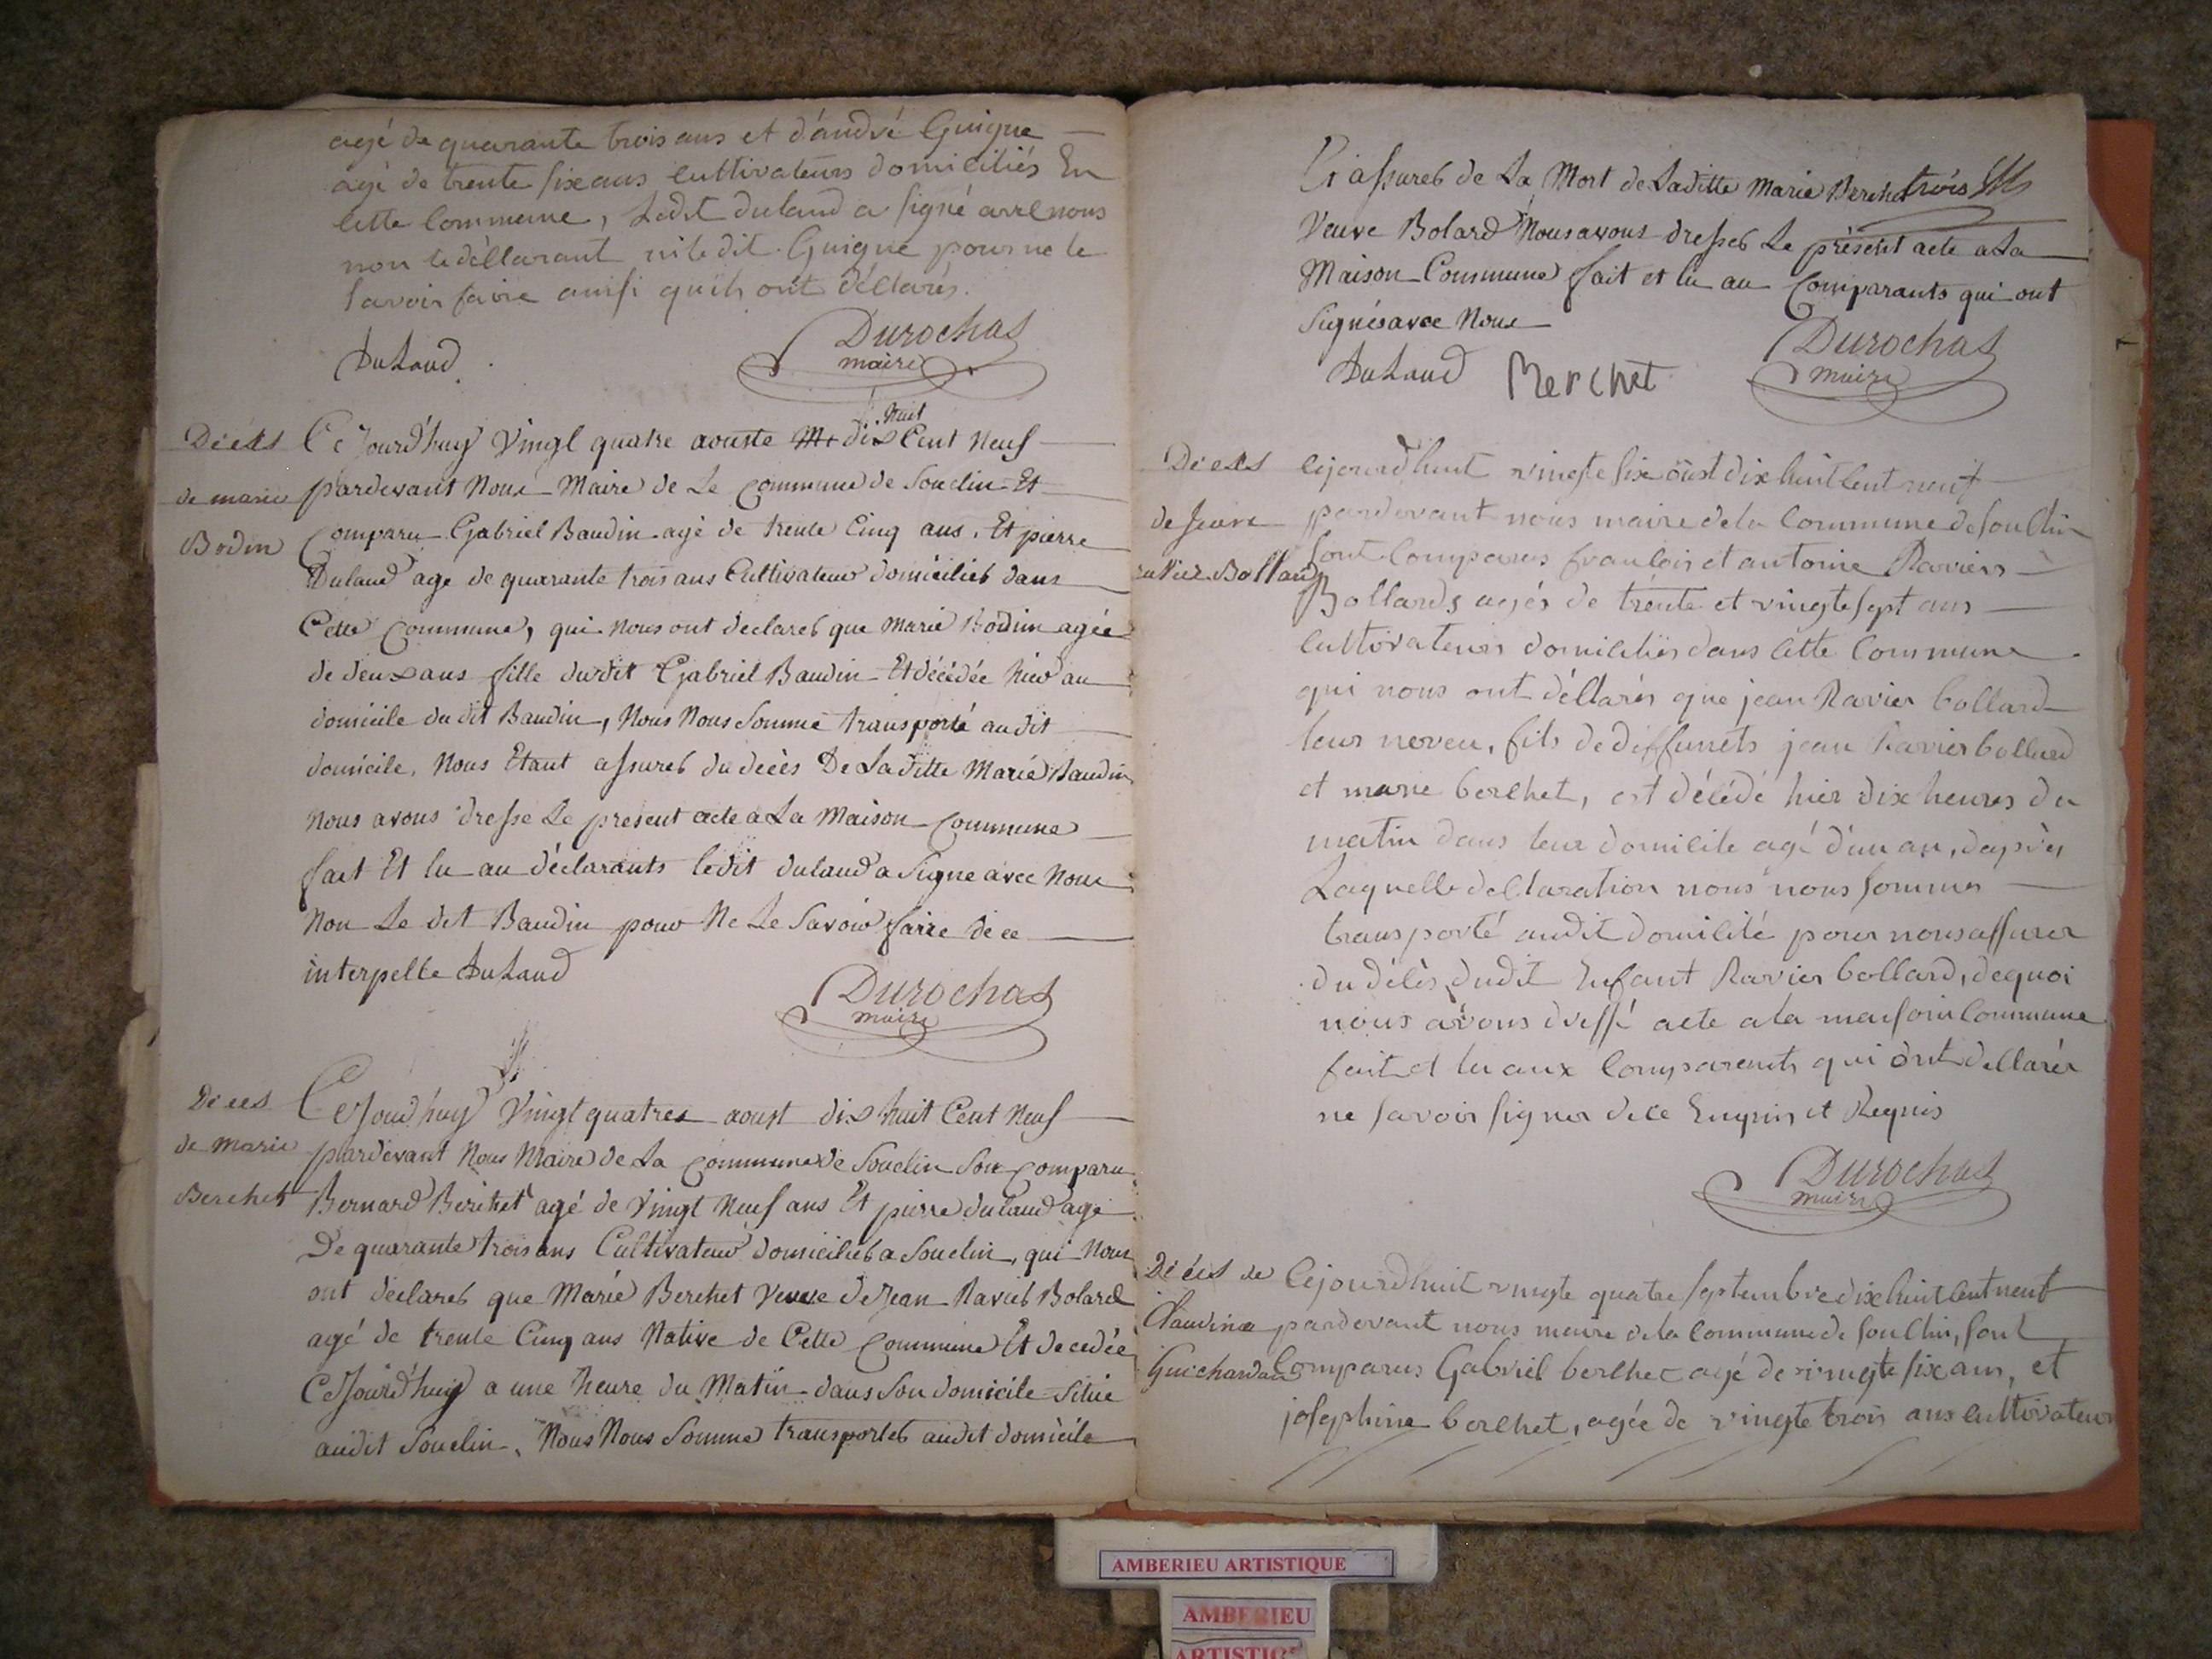 agé de quarante trois ans et d'andré Guigue
agé de trente six ans cultivateurs domiciliés En
cette Commune, Ledit dulaud a signé avec nous
non le déclarant ni le dit Guigue pour ne le
savoir faire ainsi qu'ils ont déclarés.
DuLaud
Durochat
maire
Décès
de marie
Bodin
Ce Jourd'huy Vingt quatre aouste dix huit Cent Neuf
pardevant Nous Maire de Le Commune de Souclin Et
Comparu Gabriel Baudin agé de trente Cinq ans, Et pierre
Dulaud agé de quarante trois ans Cultivateur domiciliés dans
Cette Commune, qui Nous ont declares que Marie Bodin agée
de deux ans fille dudit Gabriel Baudin Et décédée hier au
domicile du dit Baudin, Nous Nous Somme transporté audit
domicile, Nous Etant assures du decès De Laditte Marie Baudin
Nous avons dresse Le present acte a La Maison Commune
fait Et lu au déclarants ledit dulaud a Signe avec Nous
Non Le dit Baudin pour Ne Le Savoir faire de ce
interpelle DuLaud
Durochat
maire
Décès
de marie
Berchet
Ce Jourd'huy Vingt quatres aoust dix huit Cent Neuf
pardevant Nous Maire de La Commune de Souclin Son Comparu
Bernard Berchet agé de Vingt Neuf ans Et pierre dulaud agé
De quarante trois ans Cultivateur domiciliés a Souclin, qui Nous
ont déclares que Marie Berchet Veuve de Jean Ravier Bolard
agé de trente Cinq ans Native de Cette Commune Et decedée
Ce Jourd'huy a une heure du Matin dans Son domicile Situé
audit Souclin, Nous Nous Somme transportés audit domicile
trois
Et assures de La Mort de Laditte Marie Berchet
Veuve Bolard Nous avons dresses Le présent acte a La
Maison Commune fait et lu au Comparants qui ont
Signés avec Nous
DuLaud Berchet
Durochat
maire
Décès
de Jean
ravier Bollard
Cejourdhuit vingte six oûst dix huit cent neuf
pardevant nous maire de la Commune de Souclin
sont Comparus francois et antoine Raviers
Bollards agés de trente et vingte sept ans
cultivateurs domiciliés dans cette Commune
qui nous ont déclarés que jean Ravier bollard
leur neveu, fils de deffunets jean Ravier bollard
et marie berchet, est décédé hier dix heures du
matin dans leur domicile agé d'un an, daprès
Laquelle declaration nous nous sommes
transporté audit domicile pour nous assurer
du décès dudit Enfant Ravier bollard, dequoi
nous avons dressé acte a la maison Commune
fait et lu aux Comparents qui ont declarés
ne savoir signer de ce Enquis et Requis
Durochat
maire
Décès de
Claudine
Guichardan
Cejourdhuit vingte quatre septembre dix huit cent neuf
pardevant nous maire de la Commune de Souclin, sont
Comparus Gabriel berchet agé de vingte six ans, et
josephine berchet, agée de vingte trois ans cultivateurs
AMBERIEU ARTISTIQUE
AMBERIEU
ARTISTIQUE